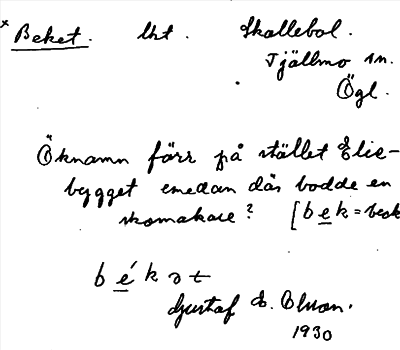 × Beket. lht. Skallebol.
Tjällmo sn.
Ögl.
Öknamn förr på stället Elie-
bygget emedan där bodde en
skomakare? [bek = beck
békət
Gustaf E. Olson.
1930